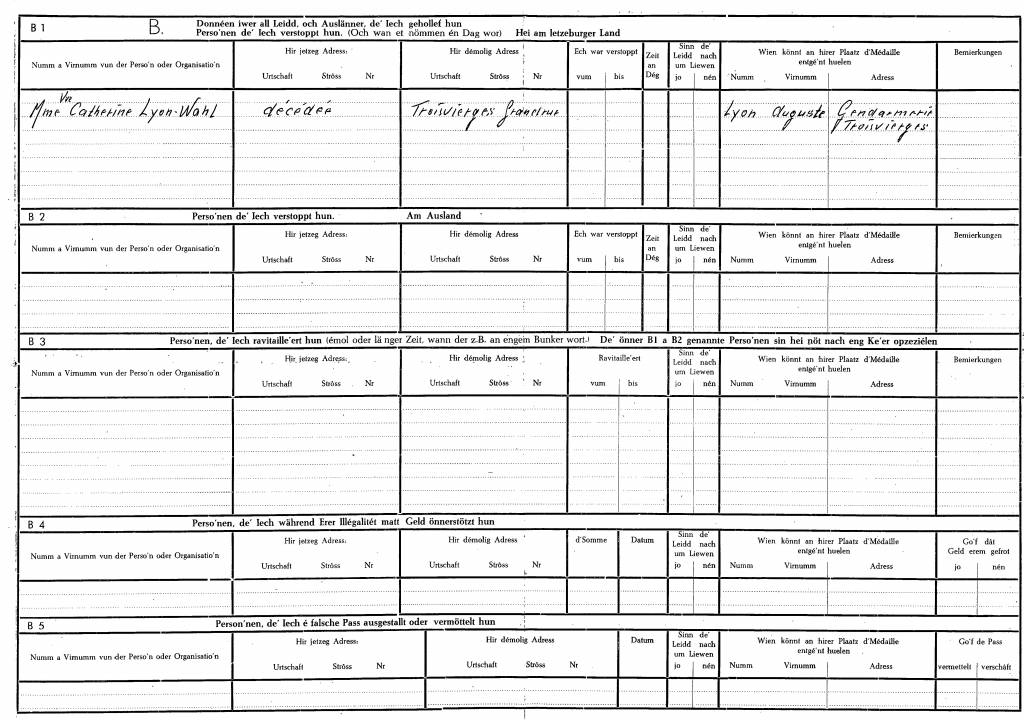 B 1 B. Donnéen iwer all Leidd, och Auslänner, de' Iech gehollef hun
Perso'nen de' Iech verstoppt hun. (Och wan et nömmen én Dag wor) Hei am letzeburger Land
Numm a Virnumm vun der Perso'n oder Organisatio'n
Hir jetzeg Adress:
Urtschaft Ströss Nr
Hir démolig Adress
Urtschaft Ströss Nr
Ech war verstoppt
vum bis
Zeit
an
Dég
Sinn de'
Leidd nach
um Liewen
jo nén
Wien könnt an hirer Plaatz d'Médaille
entgé'nt huelen
Numm Virnumm Adress
Bemierkungen
Vve
Mme Catherine Lyon-Wahl décédée Troisvierges Grandrue Lyon Auguste Gendarmerie
Troisvierges
B 2 Perso'nen de' Iech verstoppt hun. Am Ausland
Numm a Virnumm vun der Perso'n oder Organisatio'n
Hir jetzeg Adress:
Urtschaft Ströss Nr
Hir démolig Adress
Urtschaft Ströss Nr
Ech war verstoppt
vum bis
Zeit
an
Dég
Sinn de'
Leidd nach
um Liewen
jo nén
Wien könnt an hirer Plaatz d'Médaille
entgé'nt huelen
Numm Virnumm Adress
Bemierkungen
B 3 Perso'nen, de' Iech ravitaille'ert hun (émol oder länger Zeit, wann der z.B. an engem Bunker wort.) De' önner B1 a B2 genannte Perso'nen sin hei nöt nach eng Ke'er opzeziélen
Numm a Virnumm vun der Perso'n oder Organisatio'n
Hir jetzeg Adress:
Urtschaft Ströss Nr
Hir démolig Adress
Urtschaft Ströss Nr
Ravitaille'ert
vum bis
Sinn de'
Leidd nach
um Liewen
jo nén
Wien könnt an hirer Plaatz d'Médaille
entgé'nt huelen
Numm Virnumm Adress
Bemierkungen
B 4 Perso'nen, de' Iech während Erer Illégalitét matt Geld önnerstötzt hun
Numm a Virnumm vun der Perso'n oder Organisatio'n
Hir jetzeg Adress:
Urtschaft Ströss Nr
Hir démolig Adress
Urtschaft Ströss Nr
d'Somme
Datum
Sinn de'
Leidd nach
um Liewen
jo nén
Wien könnt an hirer Plaatz d'Médaille
entgé'nt huelen
Numm Virnumm Adress
Go'f dât
Geld erem gefrot
jo nén
B 5 Person'nen, de' Iech é falsche Pass ausgestallt oder vermöttelt hun
Numm a Virnumm vun der Perso'n oder Organisatio'n
Hir jetzeg Adress:
Urtschaft Ströss Nr
Hir démolig Adress
Urtschaft Ströss Nr
Datum
Sinn de'
Leidd nach
um Liewen
jo nén
Wien könnt an hirer Plaatz d'Médaille
entgé'nt huelen
Numm Virnumm Adress
Go'f de Pass
vermettelt verschâft